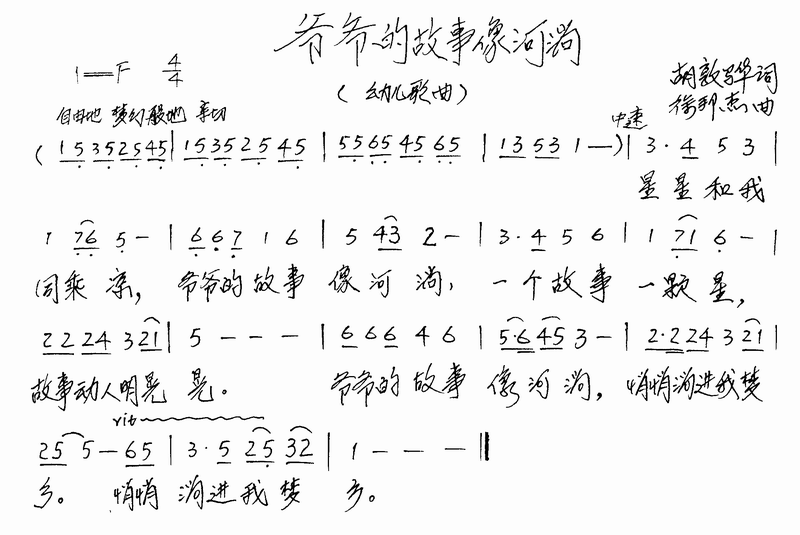 爷爷的故事像河淌
1=F 4/4
(幼儿歌曲)
胡敦骅词
徐邦杰曲
自由地 梦幻般地 亲切
中速
( 15352545 | 15352545 | 55654565 | 1353 1 — ) | 3·4 5 3 |
星星和我
1 76 5 - | 667 1 6 | 5 43 2 - | 3·4 5 6 | 1 71 6 - |
同乘凉, 爷爷的故事 像河淌, 一个故事 一颗星,
2224 321 | 5 - - - | 666 4 6 | 5·645 3 - | 2·224 321 |
故事动人明晃晃。 爷爷的故事 像河淌, 悄悄淌进我梦
rit
25 5 - 65 | 3·5 25 32 | 1 - - - ‖
乡。 悄悄 淌进我梦 乡。